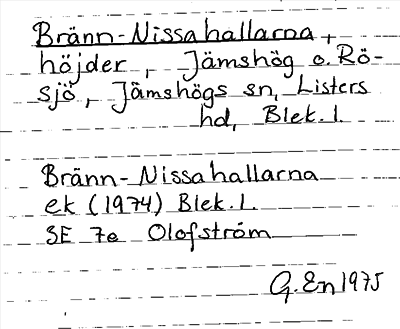 Bränn-Nissahallarna +
höjder, Jämshög o. Rö-
sjö, Jämshögs sn, Listers
hd, Blek. l.
Bränn-Nissahallarna
ek (1974) Blek. l.
3E 7e Olofström
G. En 1975